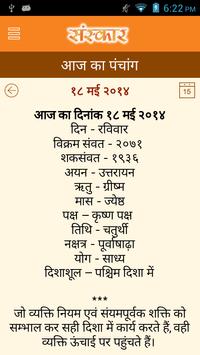 6:22 PM
संस्कार
आज का पंचांग
१८ मई २०१४
15
आज का दिनांक १८ मई २०१४
दिन - रविवार
विक्रम संवत - २०७१
शकसंवत - १९३६
अयन - उत्तरायन
ऋतु - ग्रीष्म
मास - ज्येष्ठ
पक्ष – कृष्ण पक्ष
तिथि - चतुर्थी
नक्षत्र - पूर्वाषाढ़ा
योग - साध्य
दिशाशूल – पश्चिम दिशा में
***
जो व्यक्ति नियम एवं संयमपूर्वक शक्ति को
सम्भाल कर सही दिशा में कार्य करते हैं, वही
व्यक्ति ऊंचाई पर पहुंचते हैं।